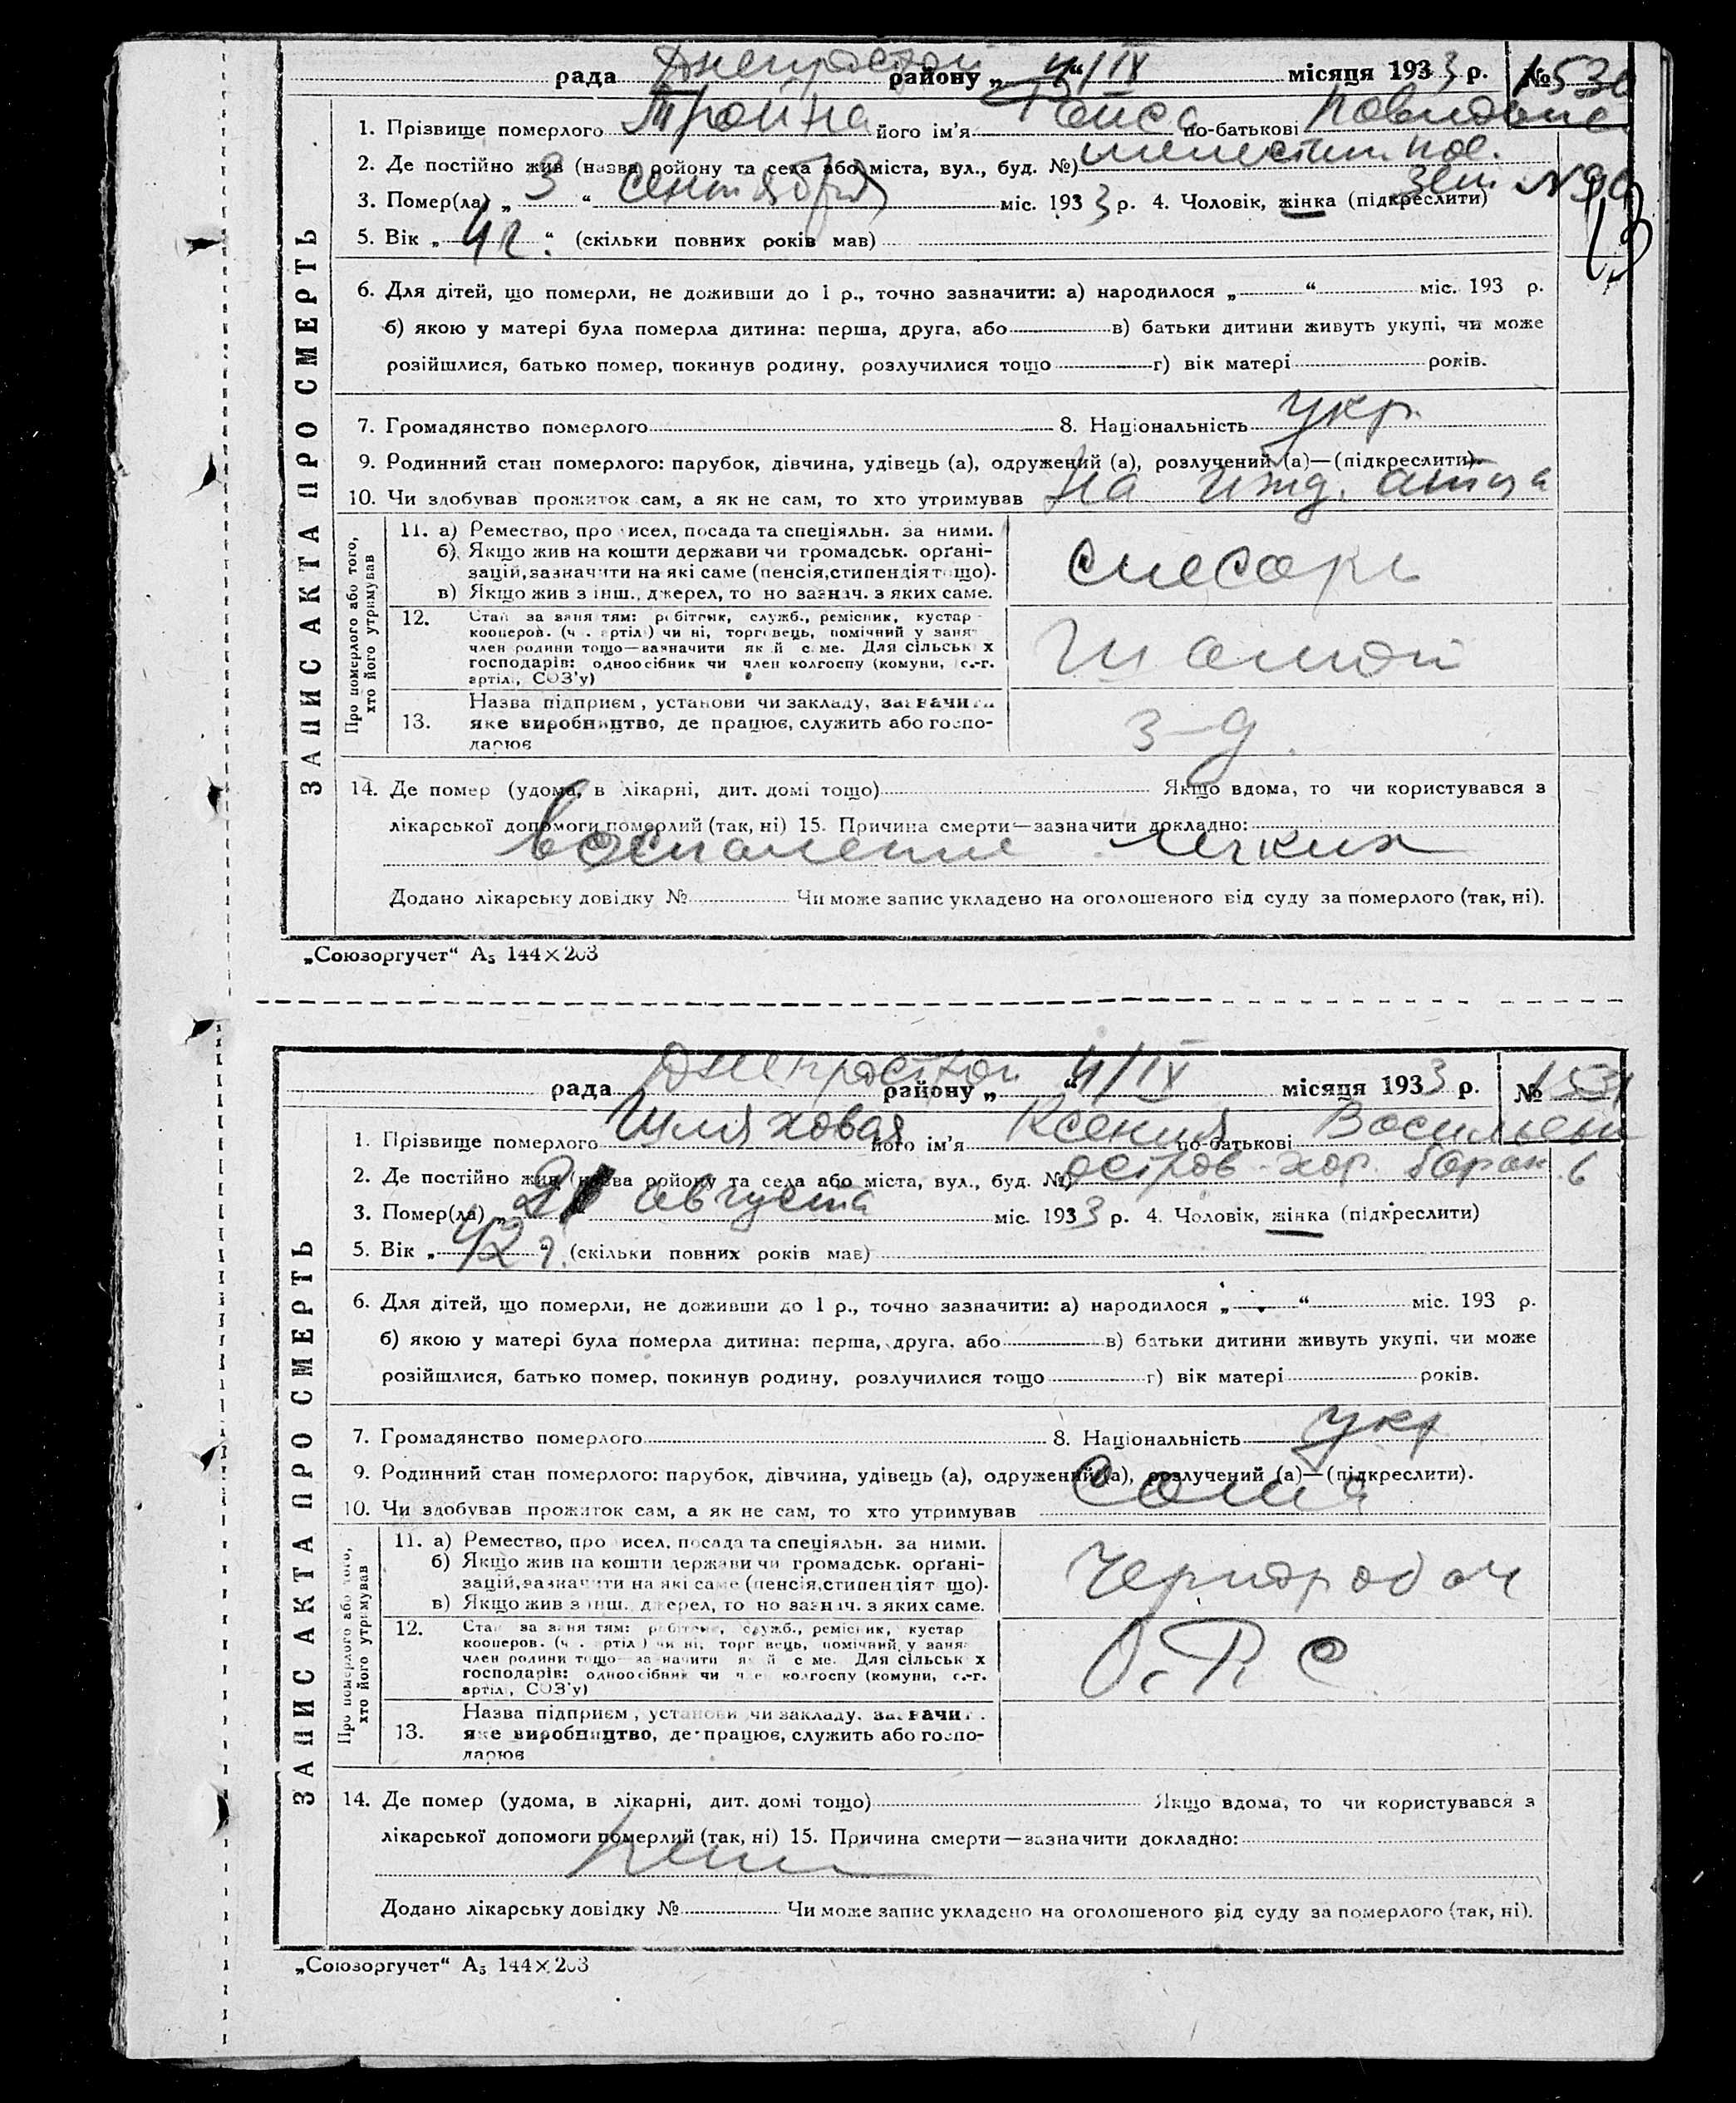 рада Днепрострой району „4“/IX місяця 1933 р. № 1530
1. Прізвище померлого Тройна його ім’я Раиса по-батькові
2. Де постійно жив (назва району та села або міста, вул., буд. №)
зем. №90
3. Помер(ла) „3“ сентября міс. 1933 р. 4. Чоловік, жінка (підкреслити)
5. Вік „4 г.“ (скільки повних років мав)
6. Для дітей, що померли, не доживши до 1 р., точно зазначити: а) народилося „ “ міс. 193 р.
б) якою у матері була померла дитина: перша, друга, або в) батьки дитини живуть укупі, чи може
розійшлися, батько помер, покинув родину, розлучилися тощо г) вік матері років.
7. Громадянство померлого 8. Національність укр.
9. Родинний стан померлого: парубок, дівчина, удівець (а), одружений (а), розлучений (а)—(підкреслити).
10. Чи здобував прожиток сам, а як не сам, то хто утримував На ижд. отца
ЗАПИС АКТА ПРО СМЕРТЬ
Про померлого або того, хто його утримував
11. а) Ремество, про исел, посада та спеціяльн. за ними.
б) Якщо жив на кошти держави чи громадськ. орґані-
зацій, зазначити на які саме (пенсія, стипендія т що).
в) Якщо жив з інш., джерел, то но зазнач. з яких саме.
слесарь
12. Стан за заня тям: робітник, служб., ремісник, кустар
кооперов. (ч . артіл ) чи ні, торговець, помічний у заня
член родини тощо—зазначити як й с ме. Для сільськ х
господарів: одноосібник чи член колгоспу (комуни, с.-г.
артіл , СОЗ’у)
13. Назва підприєм , установи чи закладу, зазначити
яке виробництво, де працює, служить або госпо-
дарює
з-д.
14. Де помер (удома, в лікарні, дит. домі тощо) Якщо вдома, то чи користувався з
лікарської допомоги померлий (так, ні) 15. Причина смерти—зазначити докладно:
Воспаление легких
Додано лікарську довідку № Чи може запис укладено на оголошеного від суду за померлого (так, ні).
„Союзоргучет“ А5 144×203
рада Днепрострой району „4“/IX місяця 1933 р. № 1531
1. Прізвище померлого Шляховая його ім’я Ксения по-батькові Васильевн
2. Де постійно жив (назва району та села або міста, вул., буд. №) остров-хор. барак 6
3. Помер(ла) „ “ августа міс. 1933 р. 4. Чоловік, жінка (підкреслити)
5. Вік „42 г.“ (скільки повних років мав)
6. Для дітей, що померли, не доживши до 1 р., точно зазначити: а) народилося „ “ міс. 193 р.
б) якою у матері була померла дитина: перша, друга, або в) батьки дитини живуть укупі, чи може
розійшлися, батько помер, покинув родину, розлучилися тощо г) вік матері років.
7. Громадянство померлого 8. Національність укр
9. Родинний стан померлого: парубок, дівчина, удівець (а), одружений (а), розлучений (а)—(підкреслити).
10. Чи здобував прожиток сам, а як не сам, то хто утримував Сама
ЗАПИС АКТА ПРО СМЕРТЬ
Про померлого або того, хто його утримував
11. а) Ремество, про исел, посада та спеціяльн. за ними.
б) Якщо жив на кошти держави чи громадськ. орґані-
зацій, зазначити на які саме (пенсія, стипендія т що).
в) Якщо жив з інш., джерел, то но зазнач. з яких саме.
чернораб оч
12. Стан за заня тям: робітник, служб., ремісник, кустар
кооперов. (ч . артіл ) чи ні, торговець, помічний у заня
член родини тощо—зазначити як й с ме. Для сільськ х
господарів: одноосібник чи член колгоспу (комуни, с.-г.
артіл , СОЗ’у)
О.Р.С.
13. Назва підприєм , установи чи закладу, зазначит
яке виробництво, де працює, служить або госпо-
дарює
14. Де помер (удома, в лікарні, дит. домі тощо) Якщо вдома, то чи користувався з
лікарської допомоги померлий (так, ні) 15. Причина смерти—зазначити докладно:
Додано лікарську довідку № Чи може запис укладено на оголошеного від суду за померлого (так, ні).
„Союзоргучет“ А5 144×203